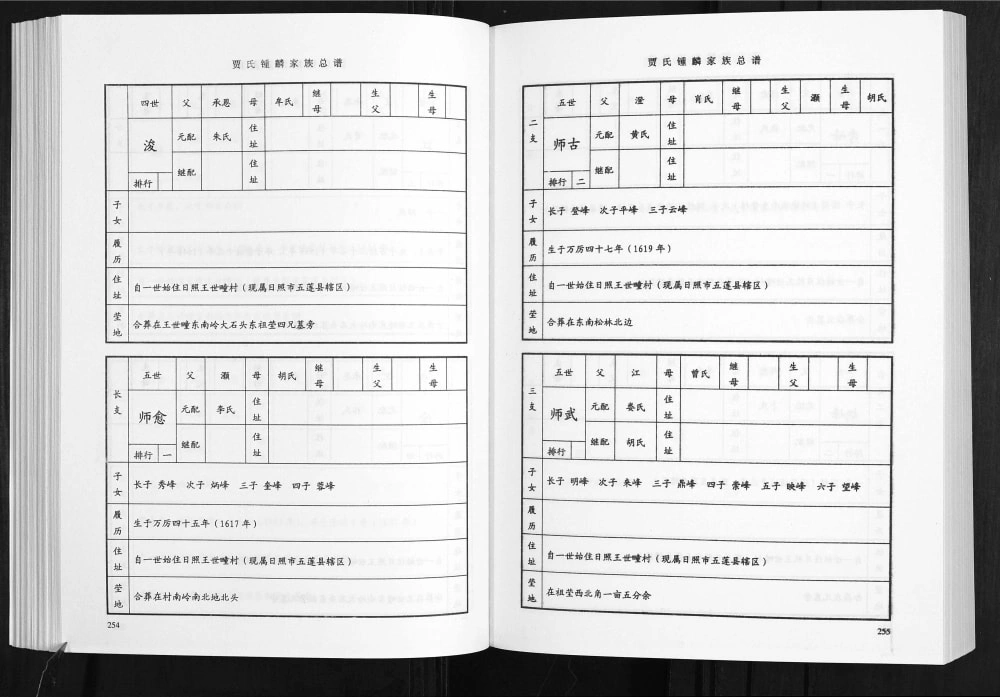 贾氏锺麟家族总谱
四世 父 承恩 母 牟氏 继母 生父 生母
浚 元配 朱氏 住址
继配 住址
排行
子女
履历
住址 自一世始住日照王世疃村（现属日照市五莲县辖区）
茔地 合葬在王世疃东南岭大石头东祖茔四兄墓旁
长支 五世 父 灏 母 胡氏 继母 生父 生母
师愈 元配 李氏 住址
继配 住址
排行 一
子女 长子 秀峰 次子 炳峰 三子 奎峰 四子 蓉峰
履历 生于万历四十五年（1617年）
住址 自一世始住日照王世疃村（现属日照市五莲县辖区）
茔地 合葬在村南岭南北地北头
254
贾氏锺麟家族总谱
二支 五世 父 澄 母 肖氏 继母 生父 灏 生母 胡氏
师古 元配 黄氏 住址
继配 住址
排行 二
子女 长子 登峰 次子平峰 三子云峰
履历 生于万历四十七年（1619年）
住址 自一世始住日照王世疃村（现属日照市五莲县辖区）
茔地 合葬在东南松林北边
三支 五世 父 江 母 曾氏 继母 生父 生母
师武 元配 娄氏 住址
继配 胡氏 住址
排行
子女 长子 明峰 次子 来峰 三子 鼎峰 四子 常峰 五子 映峰 六子 望峰
履历
住址 自一世始住日照王世疃村（现属日照市五莲县辖区）
茔地 在祖茔西北角一亩五分余
255